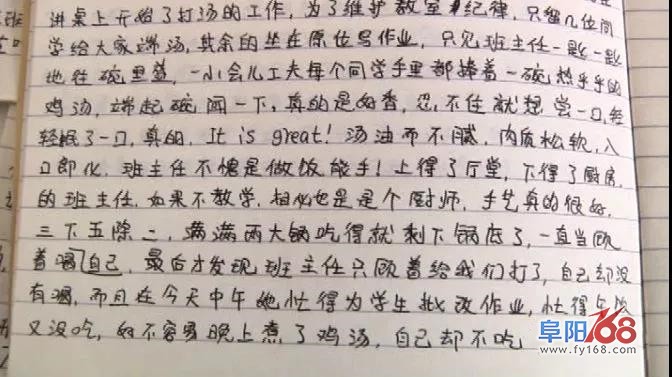 讲桌上开始了打汤的工作，为了维护教室里纪律，只留几位同
学给大家端汤，其余的坐在原位写作业，只见班主任一匙一匙
地往碗里盛，一小会儿工夫每个同学手里都捧着一碗热乎乎的
鸡汤，端起碗闻一下，真的是好香，忍不住就想尝一口，轻
轻抿了一口，真的，It is great！汤油而不腻，肉质松软，入
口即化，班主任不愧是做饭能手！上得了厅堂，下得了厨房，
的班主任，如果不教学，相必也是是个厨师，手艺真的很好，
三下五除二，满满两大锅吃得就剩下锅底了，一直当顾
着喝自己，最后才发现班主任只顾着给我们打了，自己却没
有喝，而且在今天中午她忙得为学生批改作业，忙得午饭
又没吃，好不容易晚上煮了鸡汤，自己却不吃
阜阳168
www.fy168.com